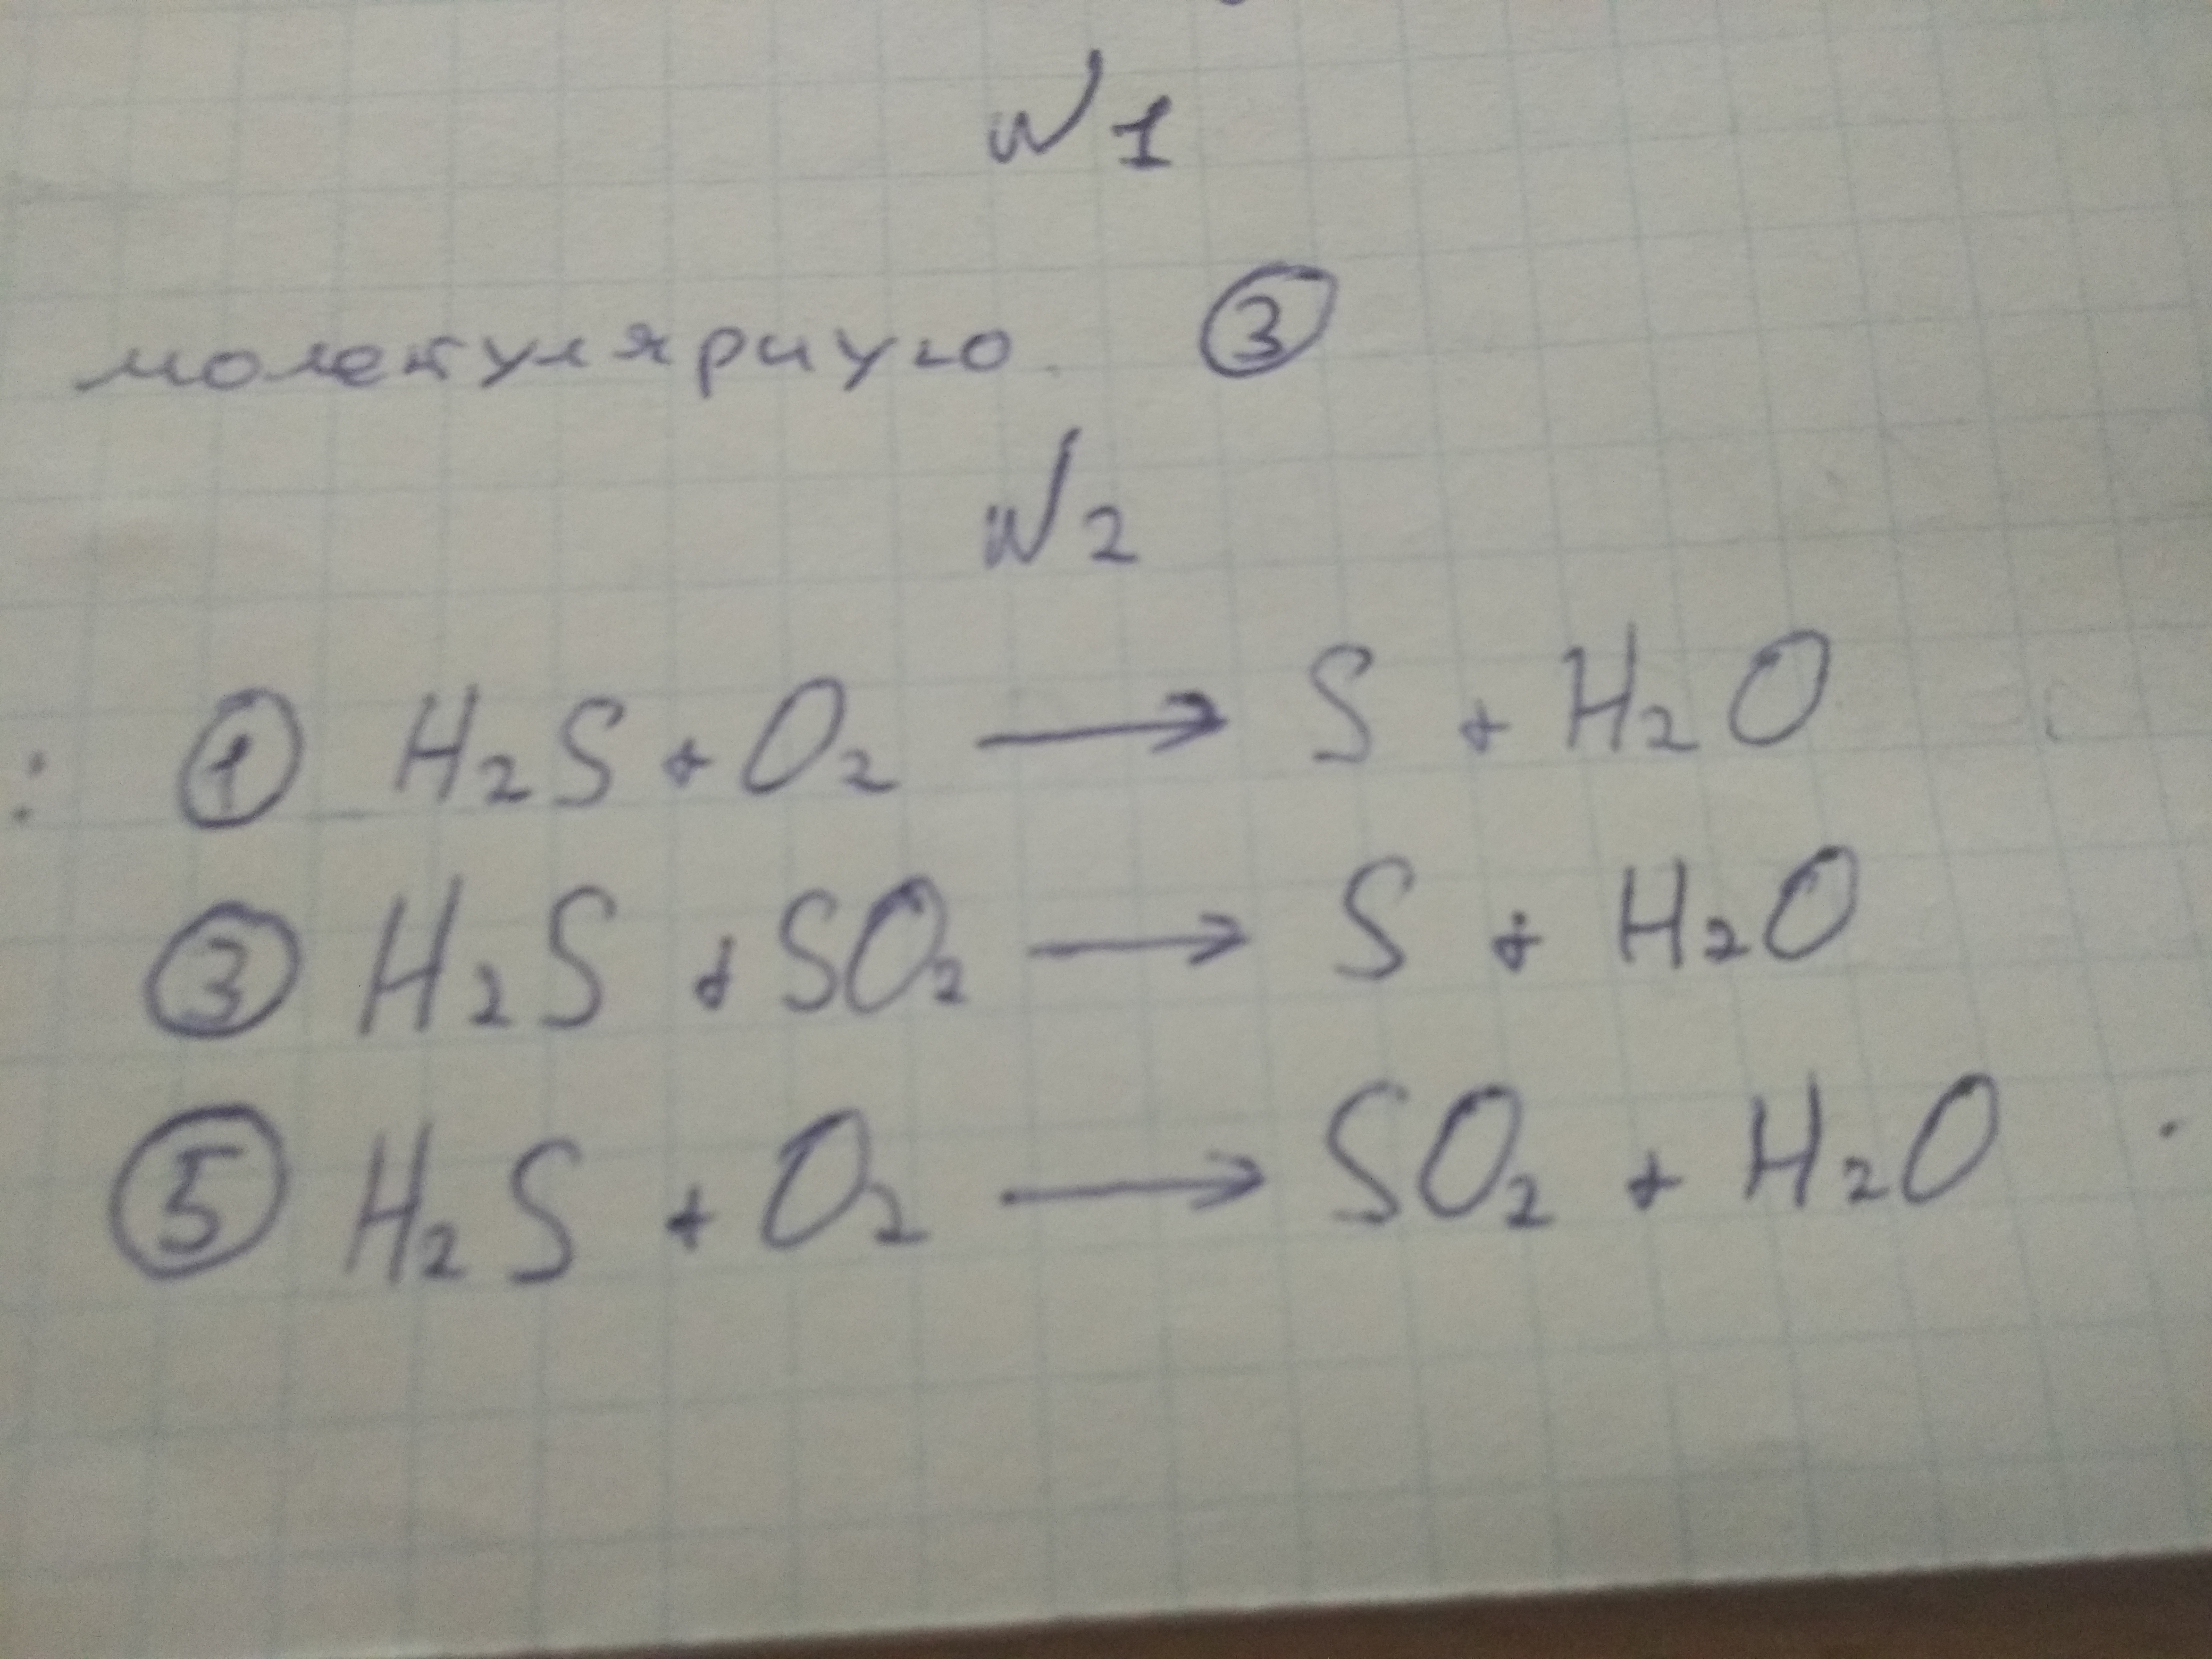 №1
молекулярную. ③
№2
: ① H₂S + O₂ → S + H₂O
③ H₂S + SO₂ → S + H₂O
⑤ H₂S + O₂ → SO₂ + H₂O